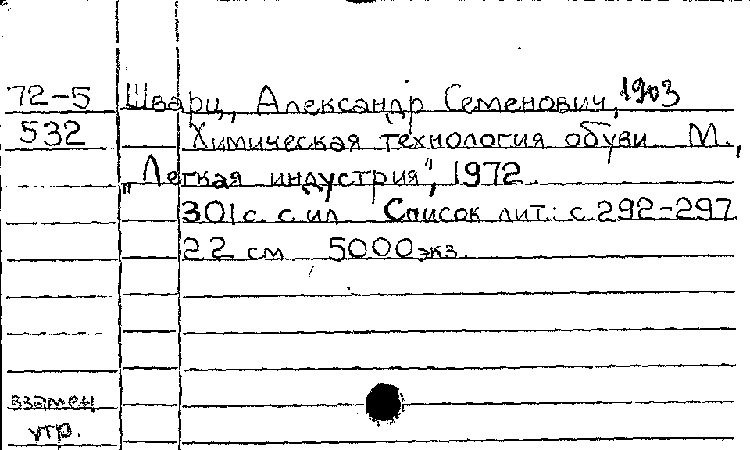 72-5 Шварц, Александр Семенович, 1903
532 Химическая технология обуви М.,
„Легкая индустрия", 1972.
301 с. с ил. Список лит.: с. 292-297.
22 см 5000 экз.
взамен
утр.